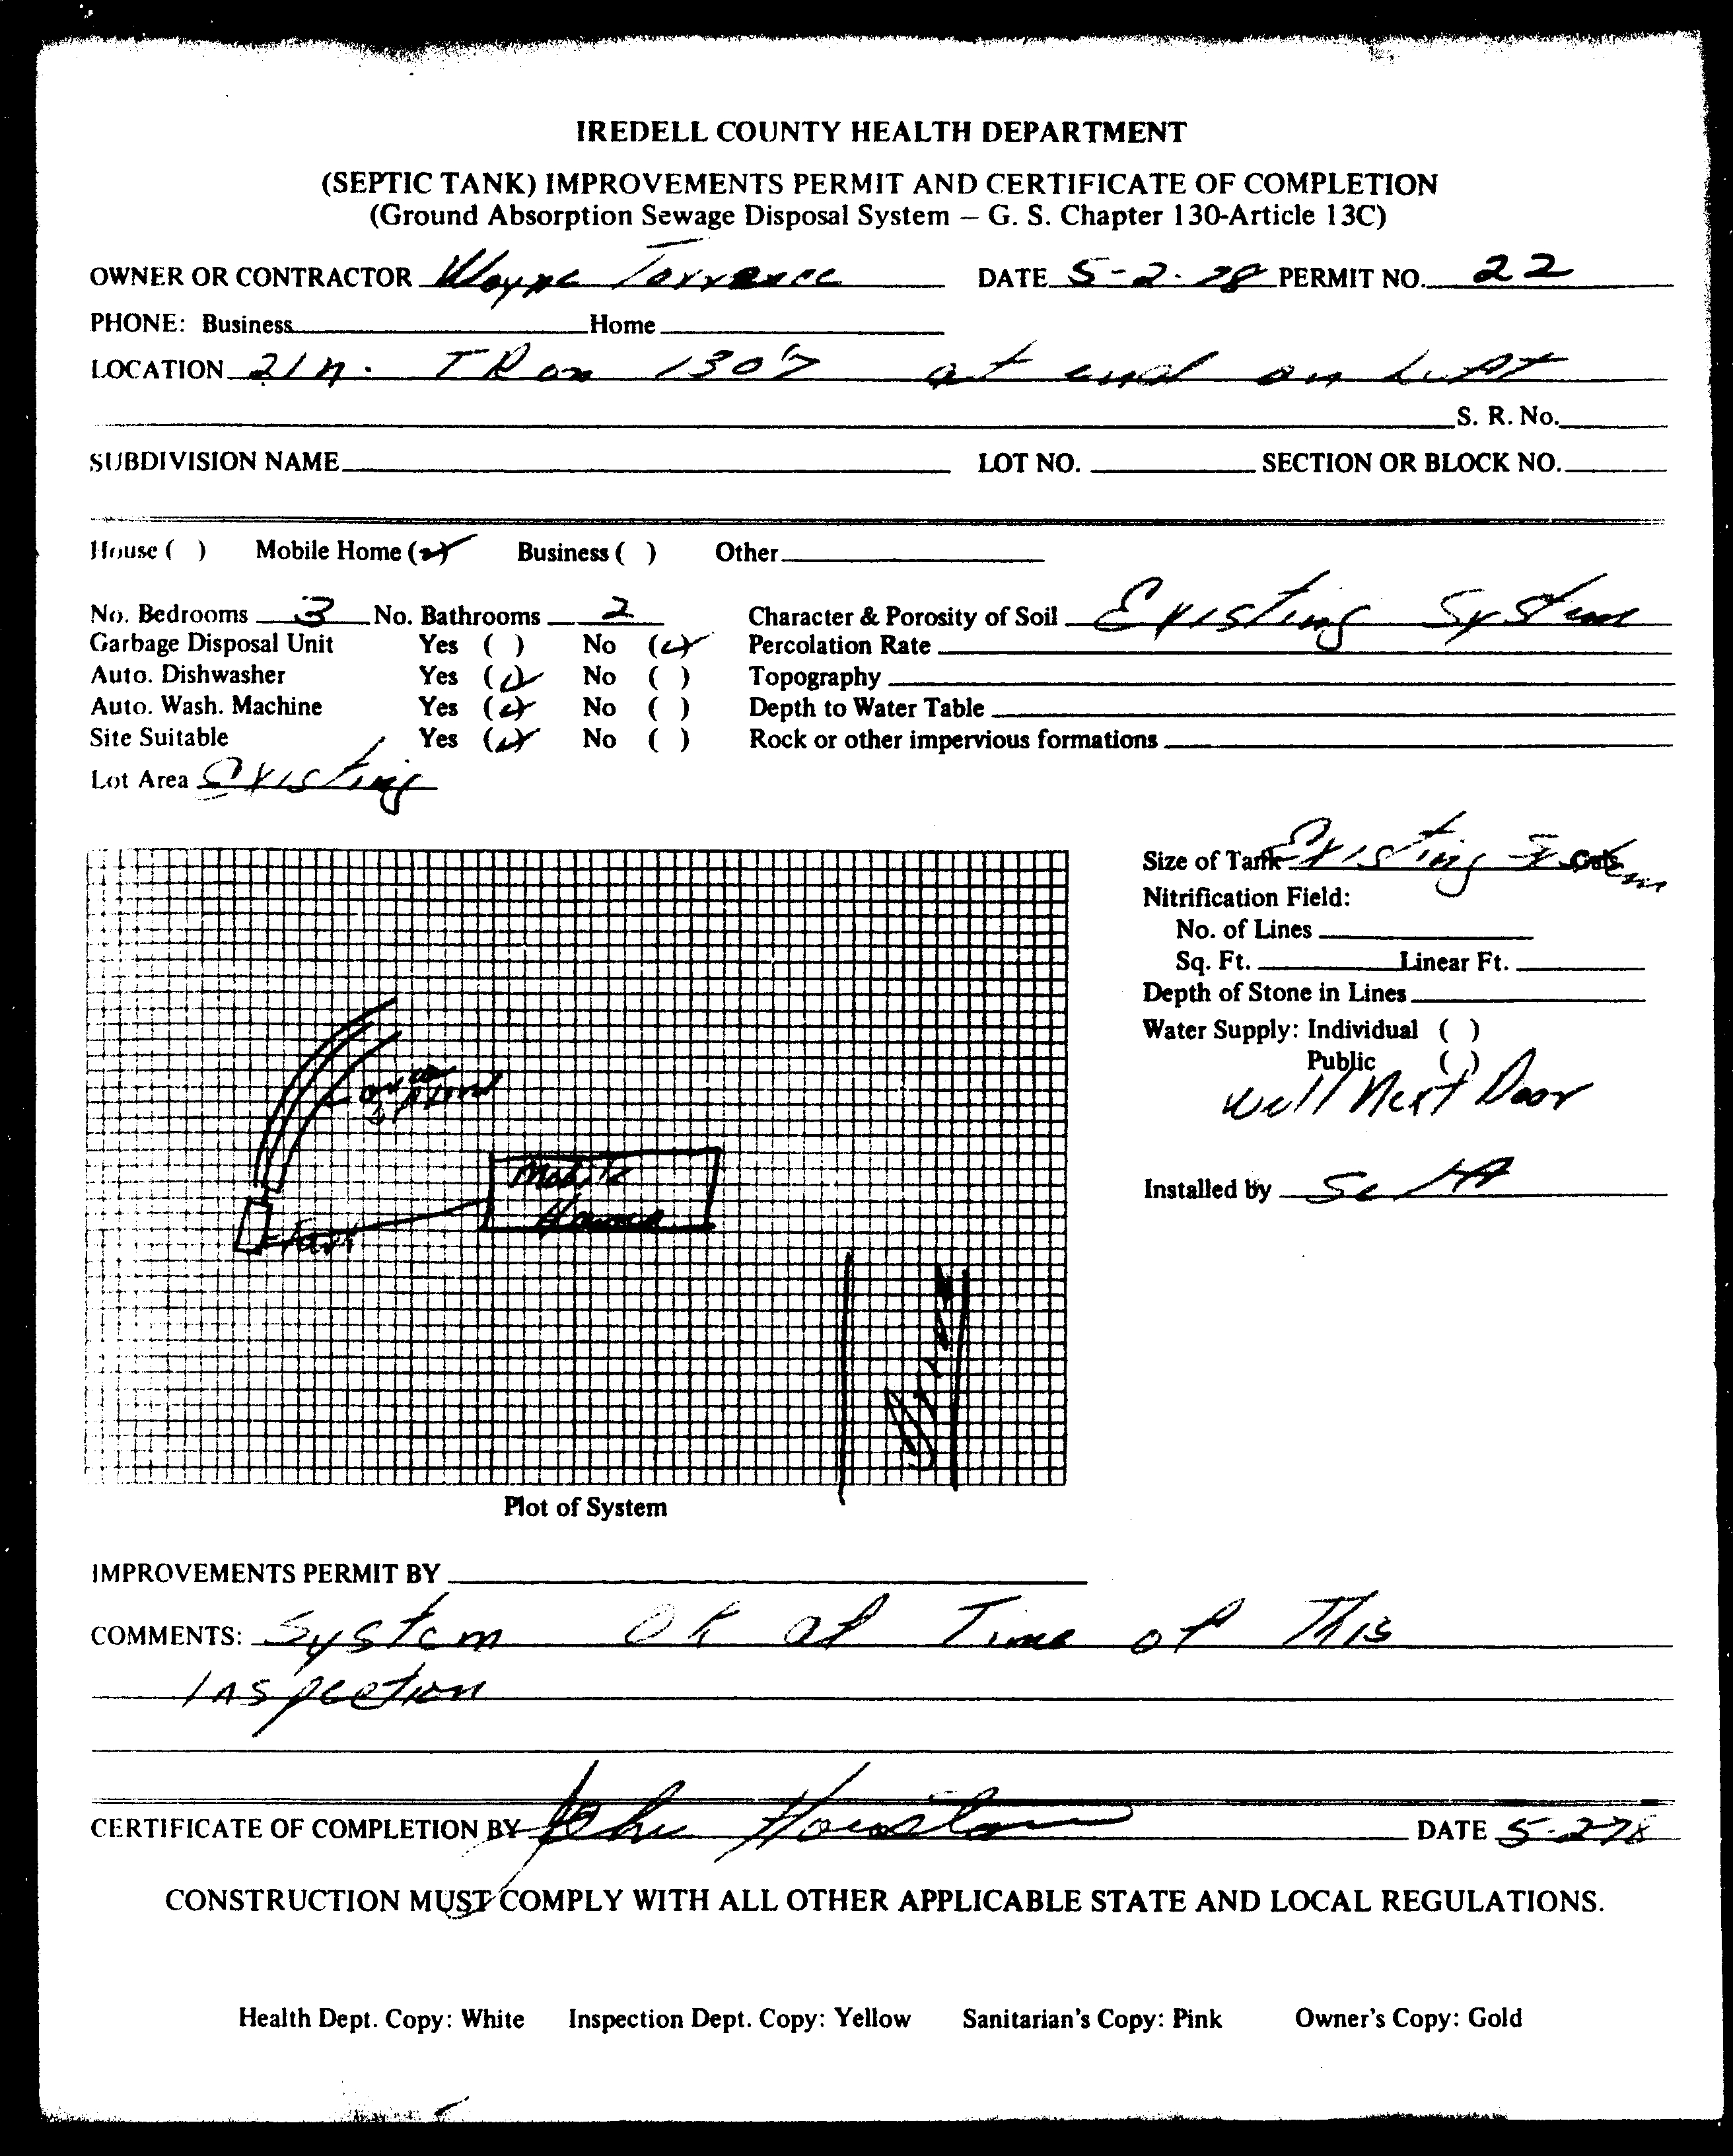 IREDELL COUNTY HEALTH DEPARTMENT
(SEPTIC TANK) IMPROVEMENTS PERMIT AND CERTIFICATE OF COMPLETION
(Ground Absorption Sewage Disposal System – G. S. Chapter 130-Article 13C)
OWNER OR CONTRACTOR Wayne Torrence DATE 5-2-78 PERMIT NO. 22
PHONE: Business Home
LOCATION 21 N. TR on 1307 at end on Left
S. R. No.
SUBDIVISION NAME LOT NO. SECTION OR BLOCK NO.
House ( ) Mobile Home (✓) Business ( ) Other
No. Bedrooms 3 No. Bathrooms 2 Character & Porosity of Soil Existing System
Garbage Disposal Unit Yes ( ) No (✓) Percolation Rate
Auto. Dishwasher Yes (✓) No ( ) Topography
Auto. Wash. Machine Yes (✓) No ( ) Depth to Water Table
Site Suitable Yes (✓) No ( ) Rock or other impervious formations
Lot Area Existing
Size of Tank Existing System Gals.
Nitrification Field:
No. of Lines
Sq. Ft. Linear Ft.
Depth of Stone in Lines
Water Supply: Individual ( )
Public ( )
Well Next Door
Installed by Self
Mobile
Home
Plot of System
IMPROVEMENTS PERMIT BY
COMMENTS: System OK at Time of This
Inspection
CERTIFICATE OF COMPLETION BY John Houston DATE 5-2-78
CONSTRUCTION MUST COMPLY WITH ALL OTHER APPLICABLE STATE AND LOCAL REGULATIONS.
Health Dept. Copy: White Inspection Dept. Copy: Yellow Sanitarian's Copy: Pink Owner's Copy: Gold